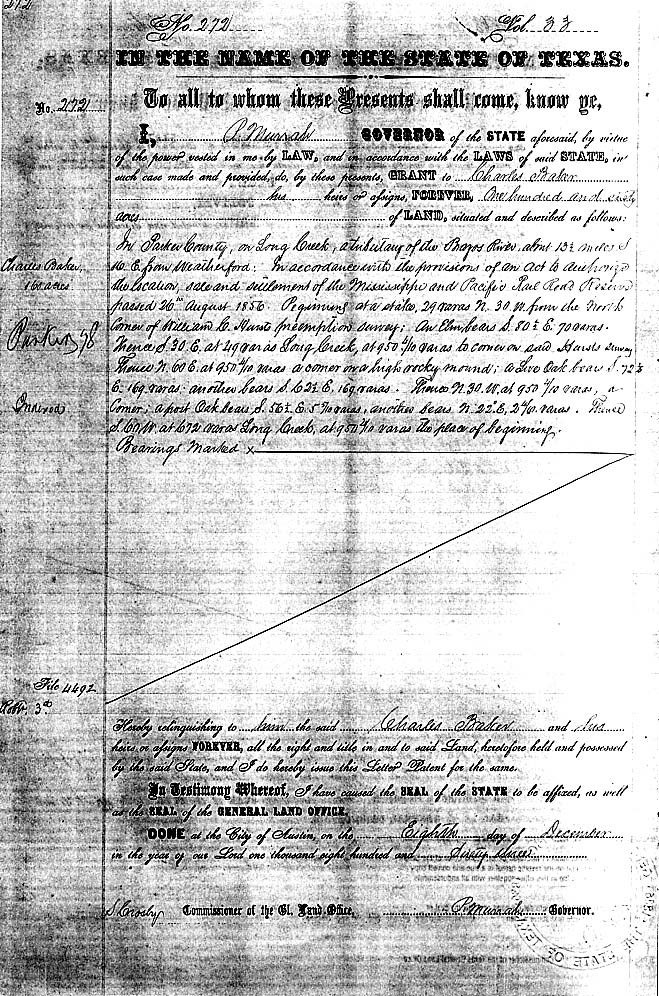 272
No. 272 Vol. 33
IN THE NAME OF THE STATE OF TEXAS.
No. 272
To all to whom these Presents shall come, know ye,
I, P. Murrah GOVERNOR of the STATE aforesaid, by virtue
of the power vested in me by LAW, and in accordance with the LAWS of said STATE, in
such case made and provided, do, by these presents, GRANT to Charles Baker
his heirs or assigns, FOREVER, One hundred and sixty
acres of LAND, situated and described as follows:
In Parker County, on Long Creek, a tributary of the Brazos River, about 13½ miles S
E. from Weatherford. In accordance with the provisions of an act to Authorize
the location, sale and settlement of the Mississippi and Pacific Rail Road Reserve
passed 26th August 1856. Beginning at a stake, 29 varas N. 30 W. from the North
Corner of William C. preemption survey; An Elm bears S. 50½ E. 70 varas.
Thence S. 30 E. at 49 varas Long Creek, at 950 4/10 varas to corner on said survey
Thence N. 60 E. at 950 4/10 varas a corner on a high rocky mound; a Live Oak bears S. 72½
E. 169 varas. another bears S. 62½ E. 169 varas. Thence N. 30. W. at 950 4/10 varas, a
Corner; a post Oak bears S. 56½ E. 5 varas, another bears N. 22. E. 2 varas. Thence
S. 60 W. at 672 varas Long Creek, at 950 4/10 varas the place of beginning.
Bearings Marked X
Charles Baker,
160 acres.
Parker 78
File 4492
Robt. 3rd
Hereby relinquishing to him the said Charles Baker and his
heirs or assigns FOREVER, all the right and title in and to said Land, heretofore held and possessed
by the said State, and I do hereby issue this Letter Patent for the same.
In Testimony Whereof, I have caused the SEAL of the STATE to be affixed, as well
as the SEAL of the GENERAL LAND OFFICE.
DONE at the City of Austin, on the Eighth day of December
in the year of our Lord one thousand eight hundred and sixty three
S. Crosby Commissioner of the Gl. Land Office. P. Murrah Governor.
STATE OF TEXAS